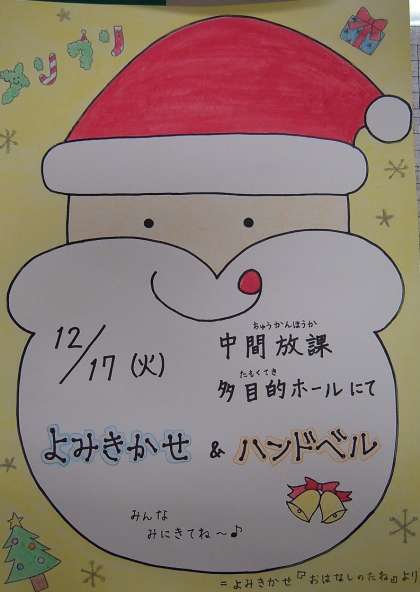 12/17(火)
ちゅうかんほうか
中間放課
たもくてき
多目的ホールにて
よみきかせ & ハンドベル
みんな
みにきてね～♪
=よみきかせ『おはなしのたね』より